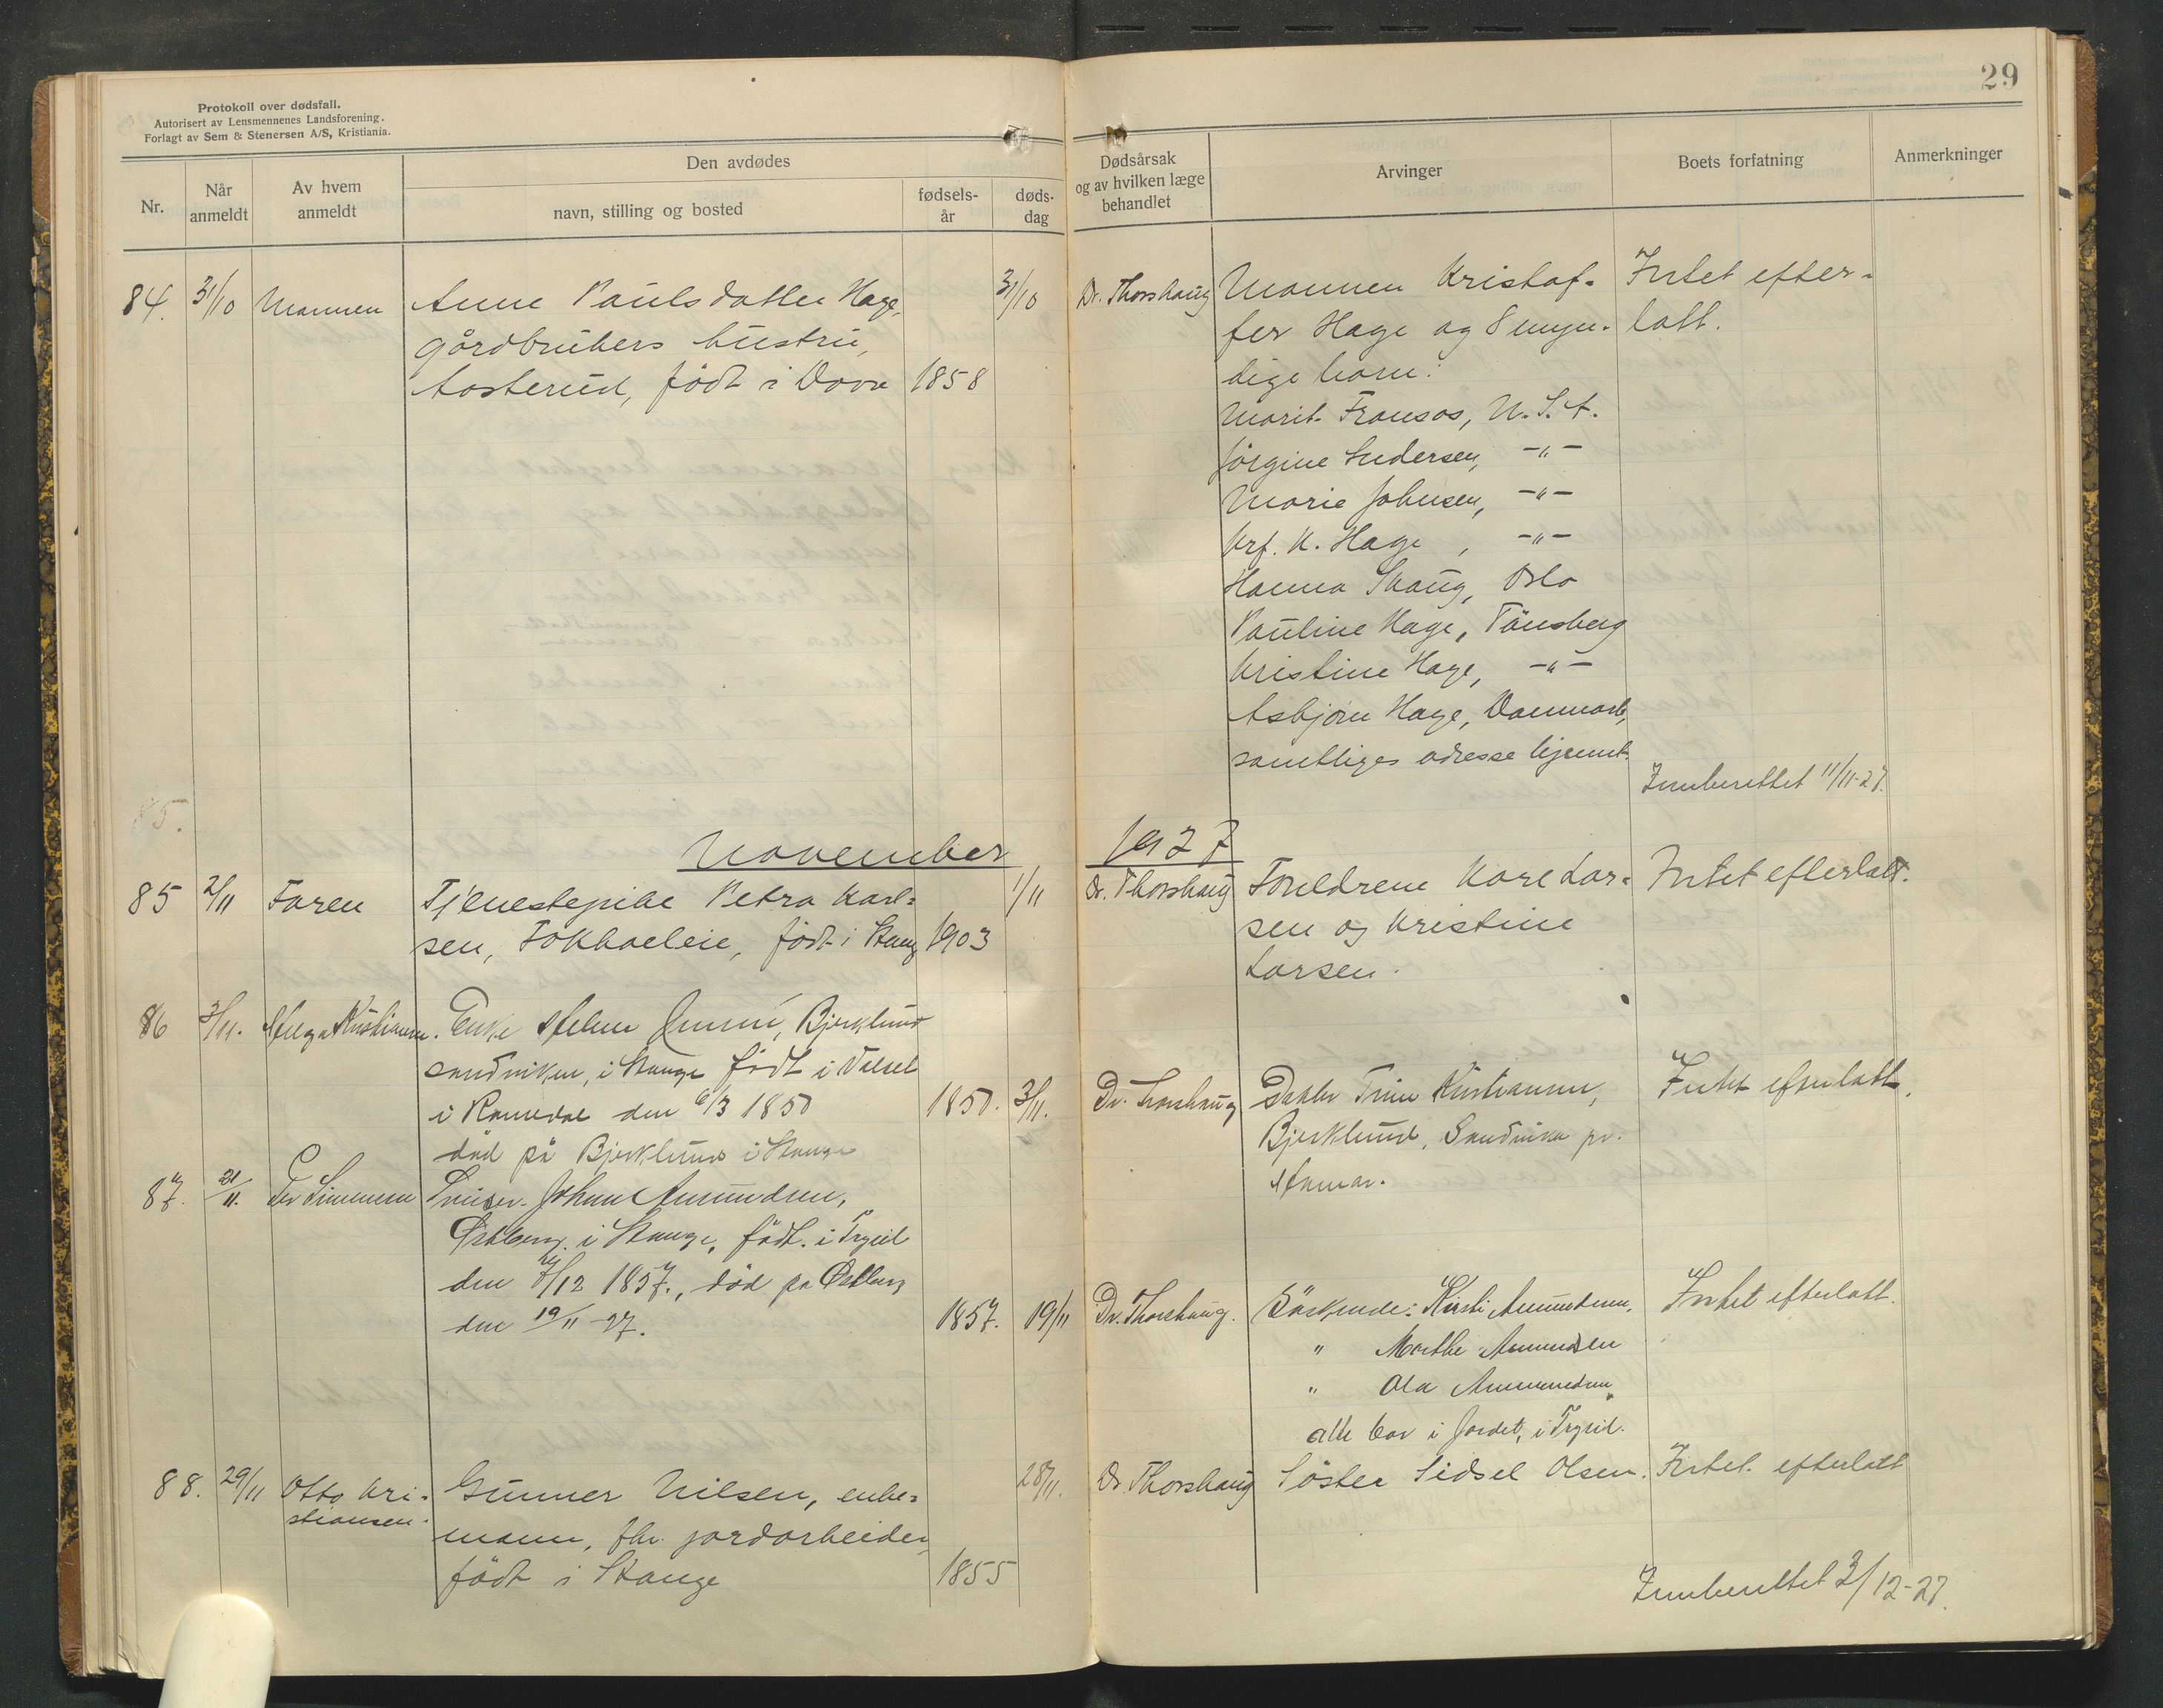 29
Protokoll over dødsfall.
Autorisert av Lensmennenes Landsforening.
Forlagt av Sem & Stenersen A/S, Kristiania.
Nr.
Når anmeldt
Av hvem anmeldt
Den avdødes
navn, stilling og bosted
fødsels-år
døds-dag
Dødsårsak og av hvilken læge behandlet
Arvinger
Boets forfatning
Anmerkninger
84. 31/10 Mannen Anne Paulsdatter Hage, 31/10 Dr. Thorshaug Mannen Kristof- Intet efter-
gårdbrukers hustru, fer Hage og 8 myn- latt.
Aasterud, født i Dovre 1858 dige barn:
Marit Fransos, U.S.A.
Jørgine Andersen, -"-
Marie Johnsen, -"-
Krf. K. Hage, -"-
Hanna Skaug, Oslo
Pauline Hage, Tönsberg
Kristine Hage, -"-
Asbjörn Hage, Danmark,
samtliges adresse ukjennt.
Innberettet 11/11-27.
85.
November 1927
85 2/11 Faren Tjenestepike Petra Karl- 1/11 Dr. Thorshaug Foreldrene Kare Lar- Intet efterlatt.
sen, født i Stange 1903 sen og Kristine
Larsen.
86 3/11. Helga Kristiansen. Enke Helene Bjerklund
Sandviken, i Stange født i
i Romedal den 6/3 1850 1850. 3/11. Dr. Thorshaug Datter Trine Kristiansen, Intet efterlatt.
død på Bjerklund i Stange Bjerklund, Sandvika pr.
Hamar.
87. 21/11. Per Simensen Johan Amundsen,
Østberg i Stange, født i Trysil
den 7/12 1857., død på Østberg
den 19/11-27. 1857. 19/11 Dr. Thorshaug. Söskende: Kirsti Amundsen. Intet efterlatt.
" Marthe Amundsen
" Ola Amundsen
alle bor i Jordet, i Trysil.
88. 29/11 Otto Kri- Gunner Nilsen, enke- 28/11. Dr. Thorshaug Söster Sidsel Olsen. Intet efterlatt
stiansen. mann, fhv. jordarbeider,
født i Stange 1855
Innberettet 3/12-27.